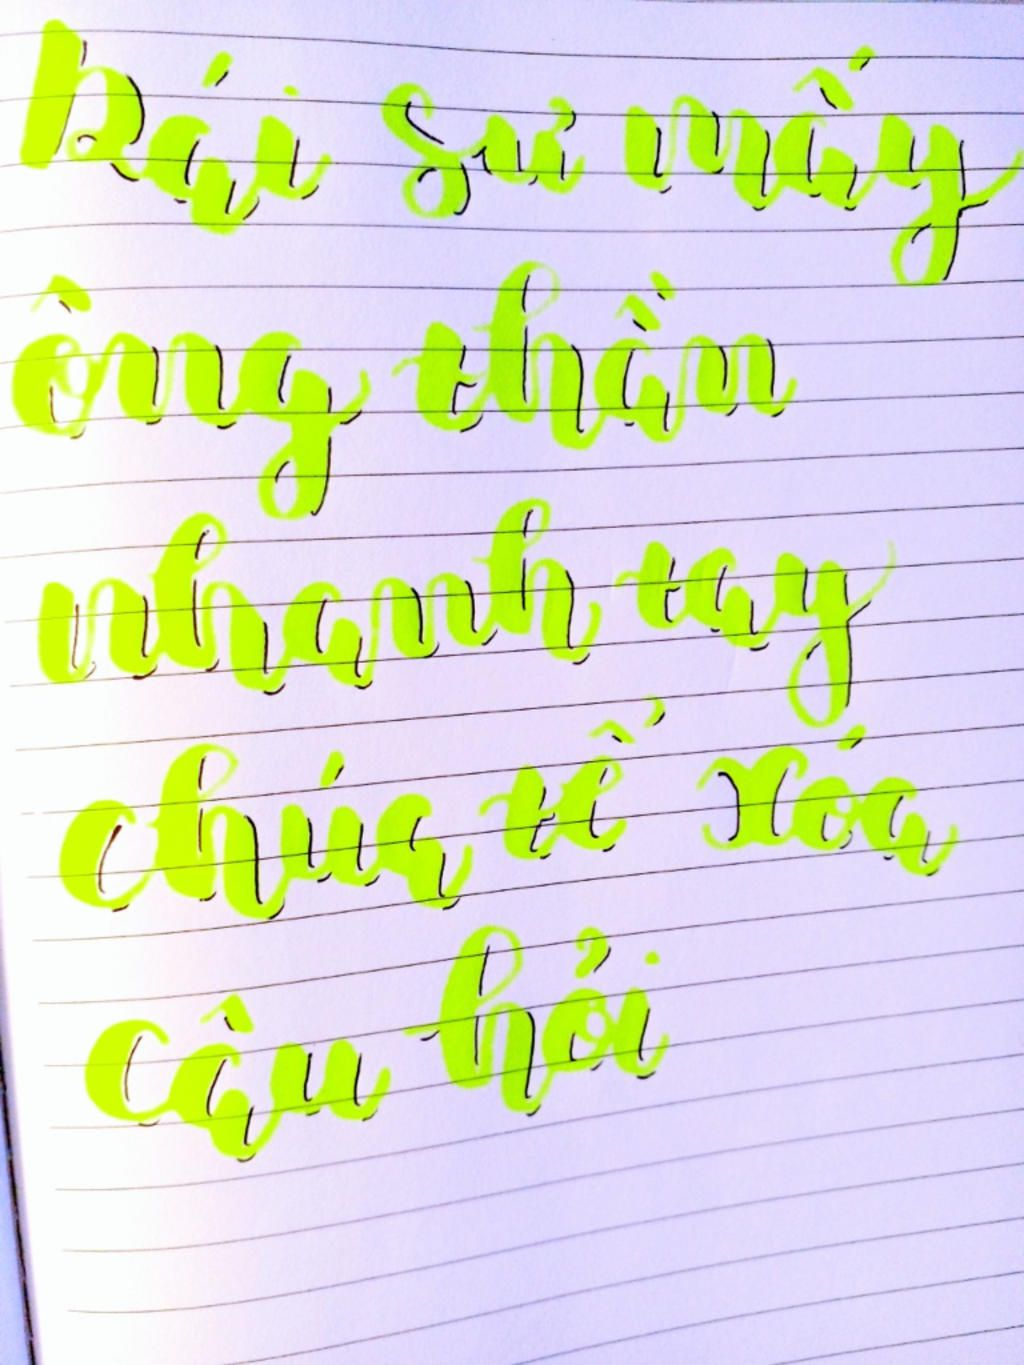 Đại sư mấy
ông thần
nhanh tay
chúa tể xóa
câu hỏi